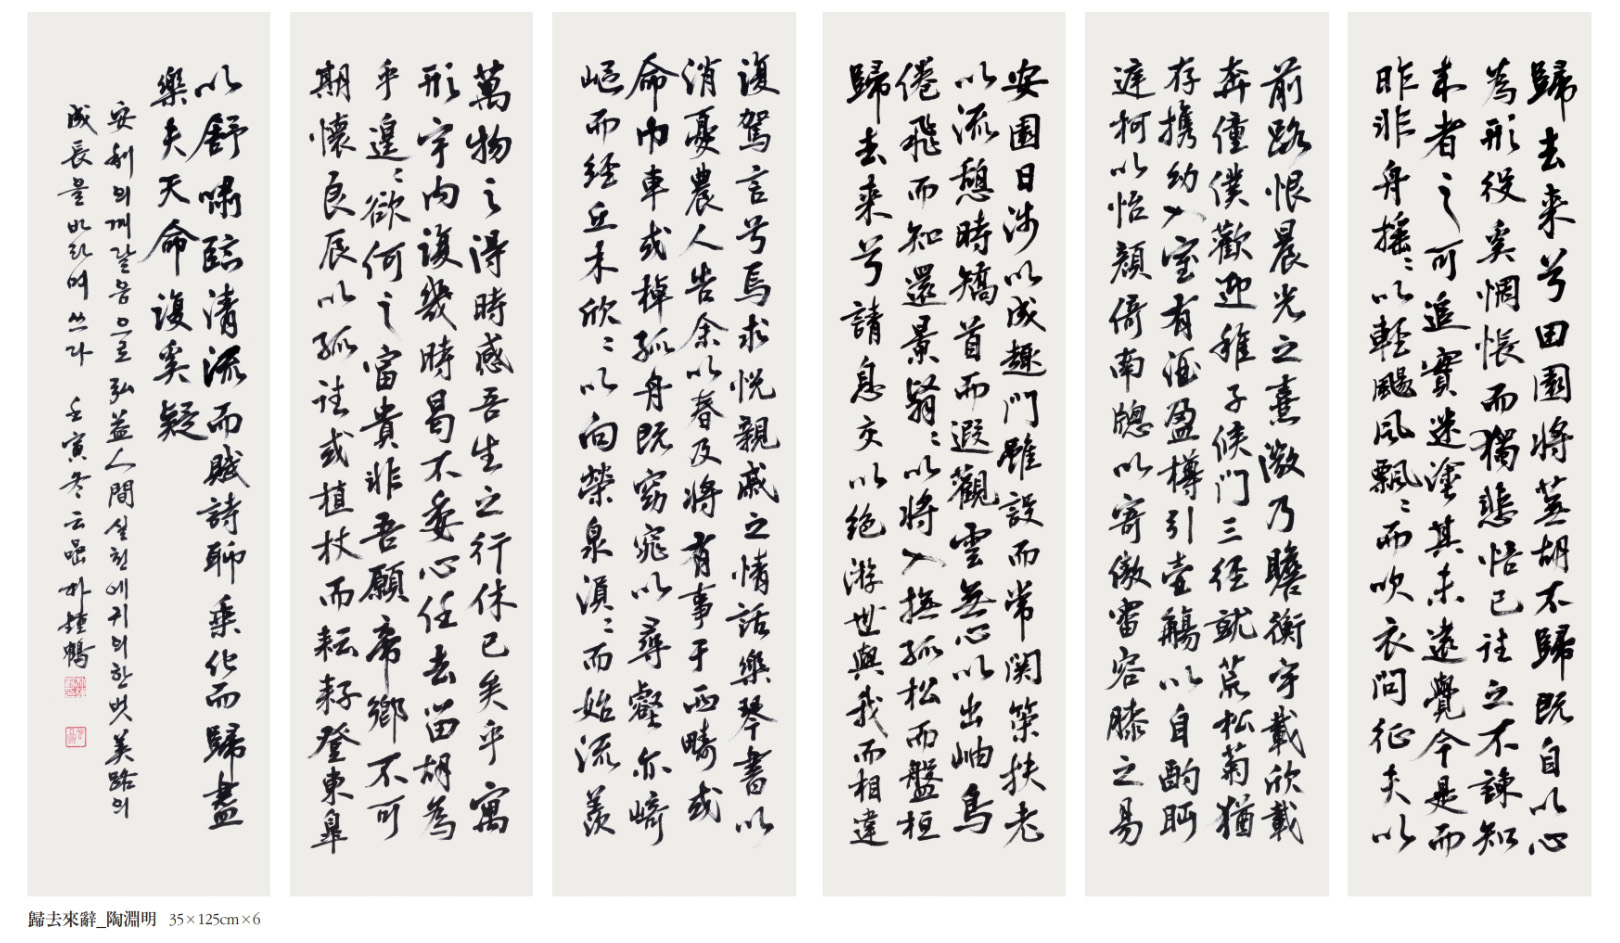 歸去来兮田園將蕪胡不歸既自以心
為形役奚惆悵而獨悲悟已往之不諫知
来者之可追實迷塗其未遠覺今是而
昨非舟搖〻以輕颺風飄〻而吹衣問征夫以
前路恨晨光之熹微乃瞻衡宇載欣載
奔僮僕歡迎稚子候門三径就荒松菊猶
存携幼入室有酒盈樽引壺觴以自酌眄
庭柯以怡顔倚南牕以寄傲審容膝之易
安園日涉以成趣門雖設而常関策扶老
以流憩時矯首而遐觀雲無心以出岫鳥
倦飛而知還景翳〻以將入撫孤松而盤桓
歸去来兮請息交以絶游世與我而相違
復駕言兮焉求悦親戚之情話樂琴書以
消憂農人告余以春及將有事于西疇或
命巾車或棹孤舟既窈窕以尋壑亦崎
嶇而経丘木欣〻以向榮泉涓〻而始流羨
萬物之得時感吾生之行休已矣乎寓
形宇内復幾時曷不委心任去留胡為
乎遑〻欲何之富貴非吾願帝鄉不可
期懷良辰以孤往或植杖而耘耔登東皐
以舒嘯臨清流而賦詩聊乘化而歸盡
樂夫天命復奚疑
安利의깨달음으로 弘益人間 실천에 귀의한 벗 美路의
成長을 바라며 쓰다 壬寅冬 云 朴鍾鶴
歸去來辭_陶淵明 35×125cm×6